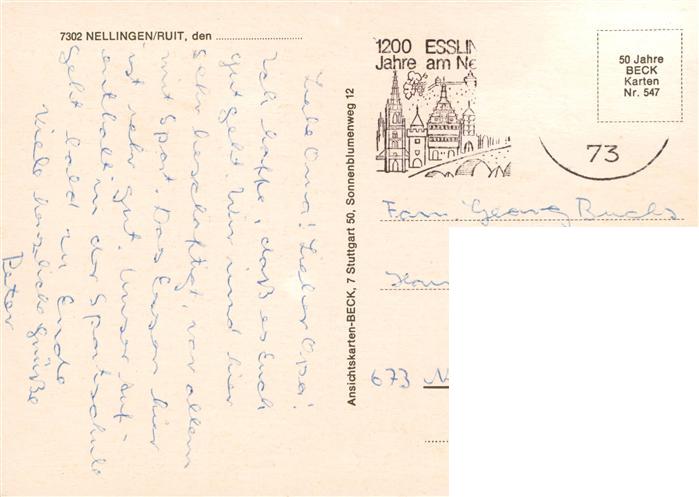 7302 NELLINGEN/RUIT, den
Liebe Oma! Lieber Opa!
Ich hoffe, daß es Euch
gut geht. Wir sind hier
sehr beschäftigt, vor allem
mit Sport. Das Essen hier
ist sehr gut. Unser Auf-
enthalt in der Sportschule
geht bald zu Ende
Viele herzliche Grüße
Peter
Ansichtskarten-BECK, 7 Stuttgart 50, Sonnenblumenweg 12
1200 ESSLIN
Jahre am Ne
50 Jahre
BECK
Karten
Nr. 547
73
Fam. Georg Buchs
673 N